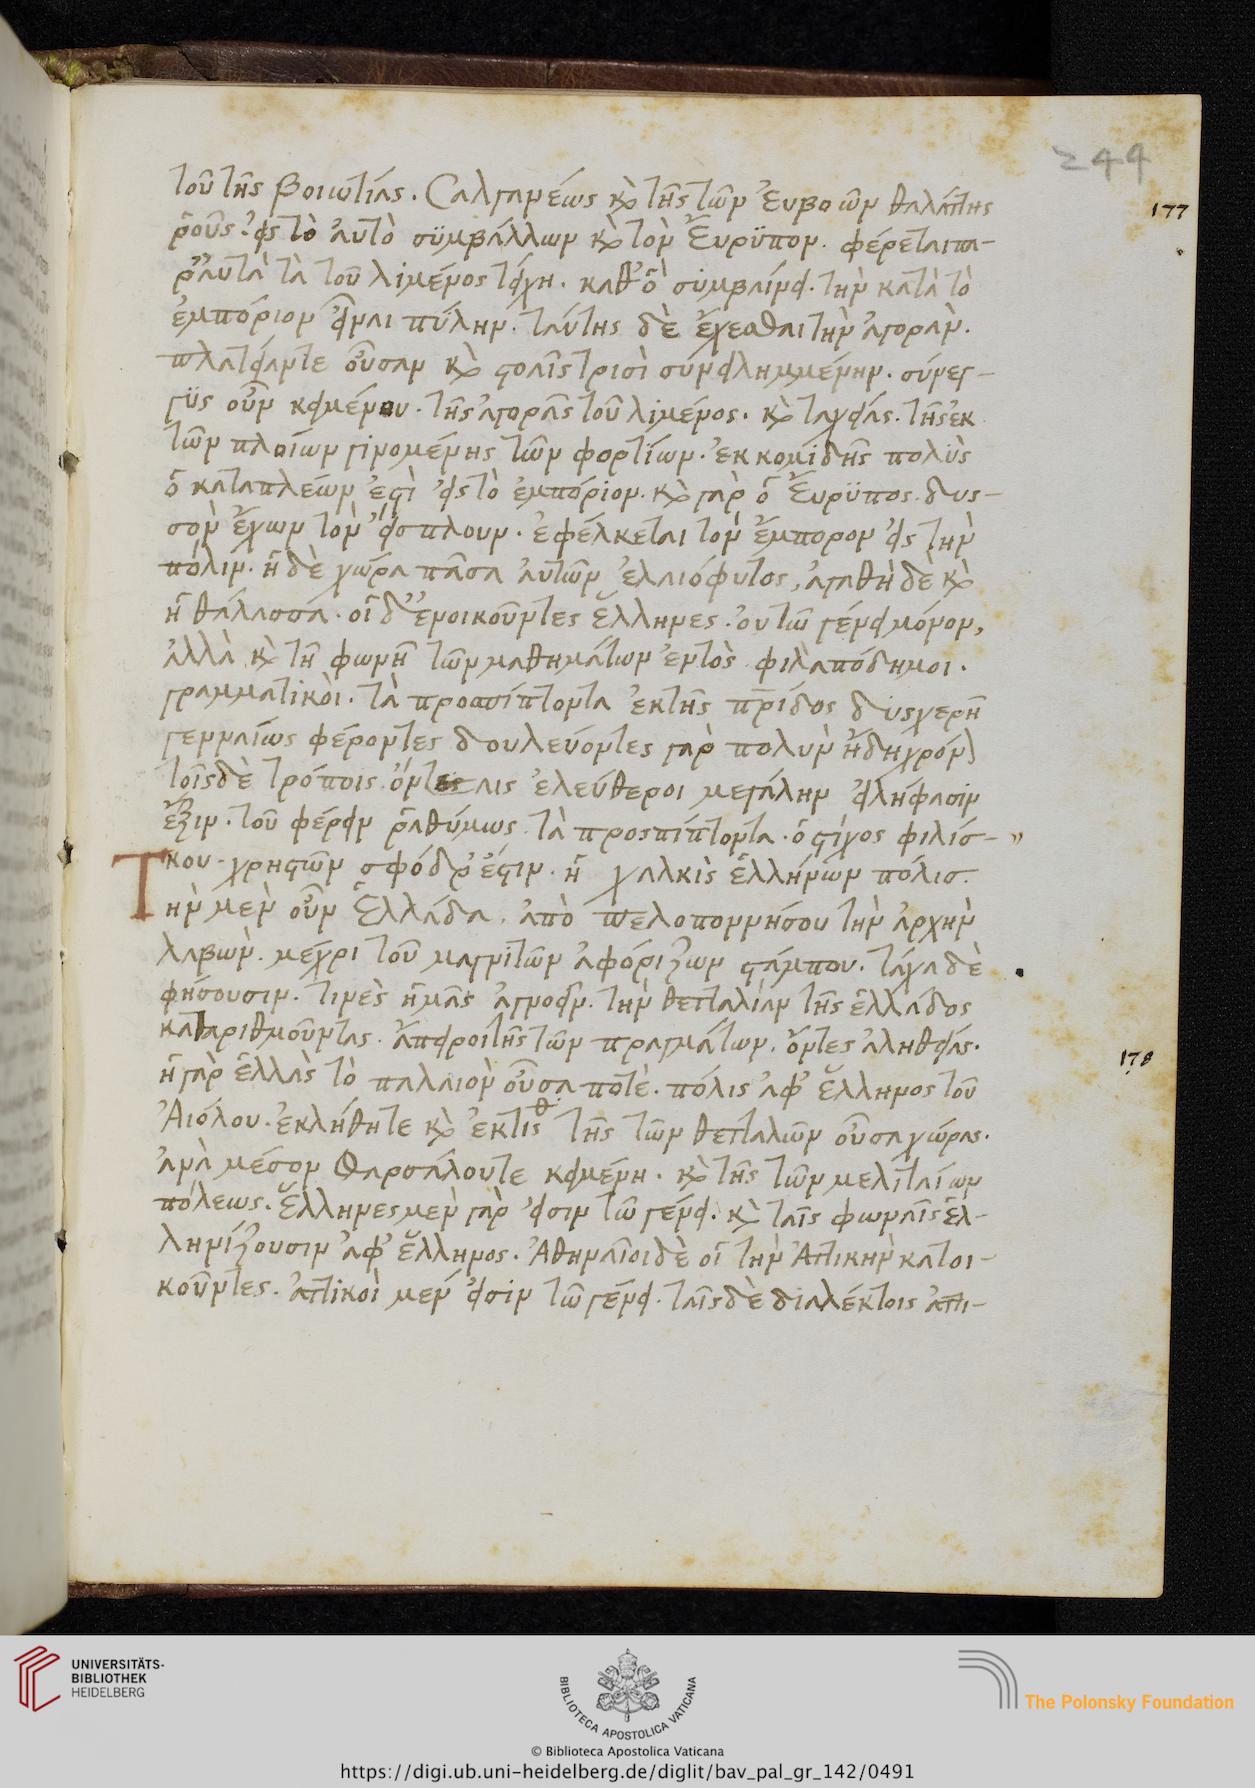 244
τοῦ τῆς βοιωτίας. Σαλγαμέως κὶ τῆς τῶν Ἐυβοῶν θαλάττης
177
ῥοῦς· εἰς τὸ ἀυτὸ σϋμβάλλων κὶ τὸν Ἔυρϋπον. φέρεται πα-
ρ' ἀυτὰ τὰ τοῦ λιμένος τείχη. καθ' ὃ συμβαίνει. τὴν κατὰ τὸ
ἐμπόριον εἶναι πύλην. ταύτης δὲ ἔχεσθαι τὴν ἀγοράν.
πλατεῖάν τε οὖσαν κὶ στοαῖς τρισὶ συνειλημμένην. σύνεγ-
γϋς οὖν κειμένου. τῆς ἀγορᾶς τοῦ λιμένος. κὶ ταχείας. τῆς ἐκ
τῶν πλοίων γινομένης τῶν φορτίων. ἐκκομιδῆς πολὺς
ὁ καταπλέων ἐστὶ εἰς τὸ ἐμπόριον. κὶ γὰρ ὁ Ἔυρϋπος. δυς-
σὸν ἔχων τὸν εἴσπλουν. ἐφέλκεται τὸν ἔμπορον εἰς τὴν
πόλιν. ἡ δὲ χώρα πᾶσα ἀυτῶν ἐλαιόφυτος, ἀγαθὴ δὲ κὶ
ἡ θάλασσα. οἱ δ' ἐνοικοῦντες ἕλληνες. ὀυ τῶ γένει μόνον,
ἀλλὰ κὶ τῆ φωνῆ τῶν μαθημάτων ἐντὸς φιλαπόδημοι.
γραμματικοὶ. τὰ προσπίπτοντα ἐκ τῆς πρίδος δυςχερῆ
γενναίως φέροντες δουλεύοντες γὰρ πολὺν ἤδη χρόν
τοῖς δὲ τρόποις ὄντες αις ἐλεύθεροι μεγάλην εἰλήφασιν
ἕξιν. τοῦ φέρειν ῥαθύμως τὰ προςπίπτοντα. ὁ στίχος φιλίσ-
κου· χρηστῶν σφόδρ' ἐστιν. ἡ χαλκὶς ἑλλήνων πόλισ.
Τὴν μὲν οὖν Ἑλλάδα. ἀπὸ πελοποννήσου τὴν ἀρχὴν
λαβών. μέχρι τοῦ μαγνιτῶν ἀφόριζων στάμπου. τάχα δὲ
φήσουσιν. τινὲς ἡμᾶς ἀγνοεῖν. τὴν θετταλίαν τῆς ἑλλάδος
καταριθμοῦντας. ἄπειροι τῆς τῶν πραγμάτων. ὄντες ἀληθείας.
178
ἡ γὰρ ἑλλὰς τὸ παλαιὸν οὖσα ποτὲ. πόλις ἀφ' ἕλληνος τοῦ
Ἀιόλου. ἐκλήθη τε κὶ ἐκτίσθ τῆς τῶν θετταλῶν οὖσα χώρας.
ἀνὰ μέσον Φαρσάλου τε κειμένη. κὶ τῆς τῶν μελιταίων
πόλεως. ἕλληνες μὲν γὰρ εἰσιν τῶ γένει. κὶ ταῖς φωναῖς ἑλ-
ληνίζουσιν ἀφ' ἕλληνος. Ἀθηναῖοι δὲ οἱ τὴν Ἀττικὴν κατοι-
κοῦντες. ἀττικοὶ μὲν εἰσιν τῶ γένει. ταῖς δὲ διαλέκτοις ἀττι-
UNIVERSITÄTS-
BIBLIOTHEK
HEIDELBERG
BIBLIOTECA APOSTOLICA VATICANA
The Polonsky Foundation
© Biblioteca Apostolica Vaticana
https://digi.ub.uni-heidelberg.de/diglit/bav_pal_gr_142/0491